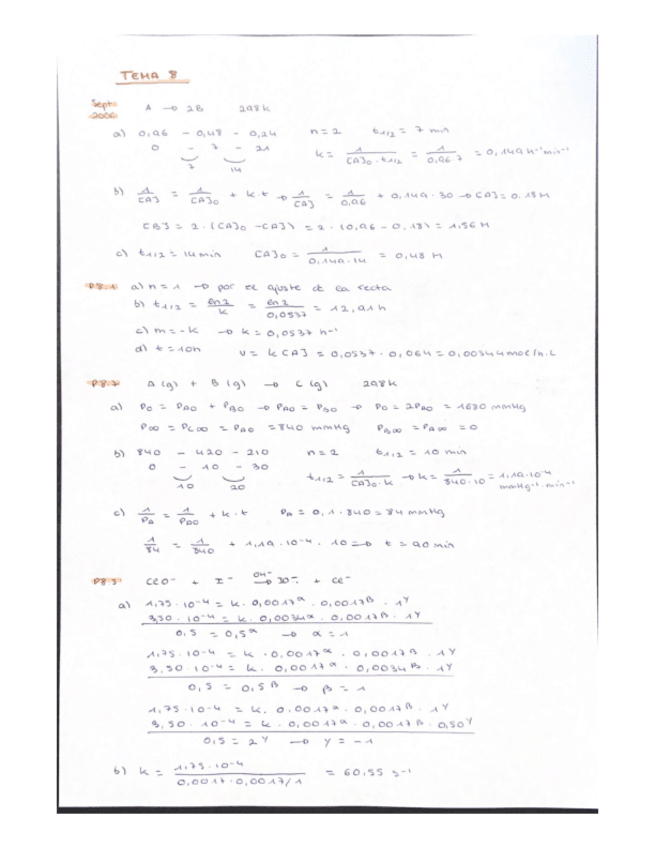 TEMA 8
Sept 2006 A → 2B 298K
a) 0,96 - 0,48 - 0,24 n = 2 t1/2 = 7 min
0 - 7 - 21 k = 1/([A]0 · t1/2) = 1/(0,96·7) = 0,149 M⁻¹min⁻¹
7 14
b) 1/[A] = 1/[A]0 + k·t → 1/[A] = 1/0,96 + 0,149 · 30 → [A] = 0.18M
[B] = 2·([A]0 - [A]) = 2·(0,96 - 0,18) = 1,56 M
c) t1/2 = 14 min [A]0 = 1/(0,149·14) = 0,48 M
P8.1 a) n = 1 → por el ajuste de la recta
b) t1/2 = ln2/k = ln2/0,0537 = 12,91h
c) m = -k → k = 0,0537 h⁻¹
d) t = 10h v = k[A] = 0,0537 · 0,064 = 0,00344 mol/h.L
A(g) + B(g) → C(g) 298K
a) P0 = PA0 + PB0 → PA0 = PB0 → P0 = 2PA0 = 1680 mmHg
P∞ = PC∞ = PA0 = 840 mmHg PB∞ = PA∞ = 0
b) 840 - 420 - 210 n = 2 t1/2 = 10 min
0 - 10 - 30 t1/2 = 1/([A]0·k) → k = 1/(840·10) = 1,19·10⁻⁴ mmHg⁻¹·min⁻¹
10 20
c) 1/PA = 1/PA0 + k·t PA = 0,1·840 = 84 mmHg
1/84 = 1/840 + 1,19·10⁻⁴ · 10 → t = 90 min
ClO⁻ + I⁻ OH⁻→ IO⁻ + Cl⁻
a) 1,75·10⁻⁴ = k·0,0017^α · 0,0017^β · 1^γ
3,50·10⁻⁴ = k·0,0034^α · 0,0017^β · 1^γ
0,5 = 0,5^α → α = 1
1,75·10⁻⁴ = k·0,0017^α · 0,0017^β · 1^γ
3,50·10⁻⁴ = k·0,0017^α · 0,0034^β · 1^γ
0,5 = 0,5^β → β = 1
1,75·10⁻⁴ = k·0,0017^α · 0,0017^β · 1^γ
3,50·10⁻⁴ = k·0,0017^α · 0,0017^β · 0,50^γ
0,5 = 2^γ → γ = -1
b) k = 1,75·10⁻⁴/(0,0017·0,0017/1) = 60,55 s⁻¹